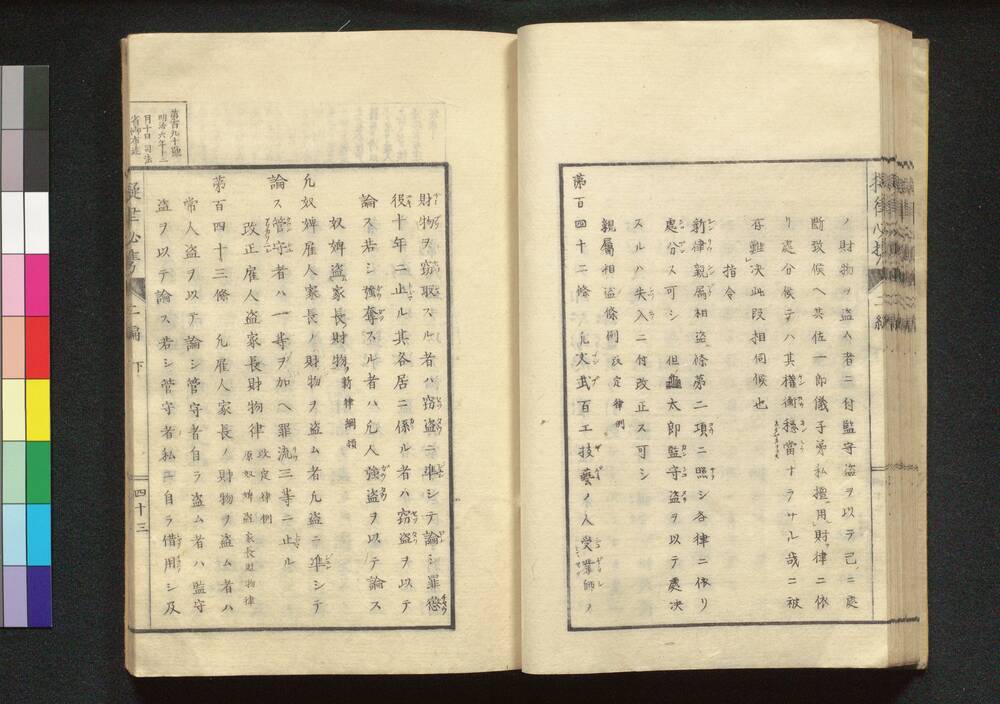 ノ財物ヲ盗ム者ニ付監守盗ヲ以テ己ニ處
断致候ヘ共佐一郎儀子弟私擅用財律ニ依
リ處分候テハ其權衡穏當ナラサル哉ニ被
存難决此段相伺候也
指令
新律親属相盗條第二項ニ照シ各律ニ依リ
處分ス可シ但龜太郎監守盗ヲ以テ處决
スルハ失入ニ付改正ス可シ
親屬相盗條例 改定律例
第百四十二條 凡文武百工技藝ノ人受業師ノ
財物ヲ窃取スル者ハ窃盗ニ準シテ論シ罪懲
役十年ニ止ル其各居ニ係ル者ハ窃盗ヲ以テ
論ス若シ強奪スル者ハ凡人強盗ヲ以テ論ス
奴婢盗家長財物 新律綱領
凡奴婢雇人家長ノ財物ヲ盗ム者凡盗ニ準シテ
論ス管守者ハ一等ヲ加ヘ罪流三等ニ止ル
改正雇人盗家長財物律 改定律例 原奴婢盗家長財物律
第百四十三條 凡雇人家長ノ財物ヲ盗ム者ハ
常人盗ヲ以テ論シ管守者自ラ盗ム者ハ監守
盗ヲ以テ論ス若シ管守者私ニ自ラ借用シ及
第百九十號
明治六年十二
月十日司法
二編 下
四十三